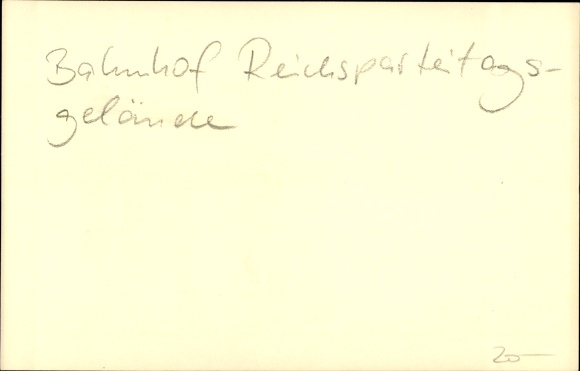 Bahnhof Reichsparteitags-
gelände
20-